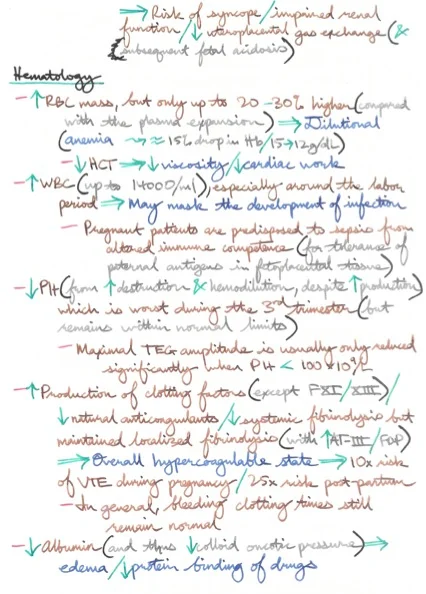 ⇒ Risk of syncope/impaired renal
function/↓uteroplacental gas exchange (&
subsequent fetal acidosis)
Hematology
- ↑RBC mass, but only up to 20-30% higher (compared
with the plasma expansion) ⇒ Dilutional
(anemia ⇝ ≈15% drop in Hb/15→12g/dL)
- ↓HCT ⇒ ↓viscosity/↓cardiac work
- ↑WBC (up to 14000/ml), especially around the labor
period ⇒ May mask the development of infection
- Pregnant patients are predisposed to sepsis from
altered immune competence (for tolerance of
paternal antigens in fetoplacental tissue)
- ↓Plt (from ↑destruction & hemodilution, despite ↑production)
which is worst during the 3rd trimester (but
remains within normal limits)
- Maximal TEG amplitude is usually only reduced
significantly when Plt < 100*10⁹/L
- ↑Production of clotting factors (except FXI/XIII)/
↓natural anticoagulants/↓systemic fibrinolysis but
maintained localized fibrinolysis (with ↑AT-III/FDP)
⇒ Overall hypercoagulable state ⇒ 10x risk
of VTE during pregnancy/25x risk post-partum
- In general, bleeding clotting times still
remain normal
- ↓Albumin (and thus ↓colloid oncotic pressure) ⇒
edema/↓protein binding of drugs